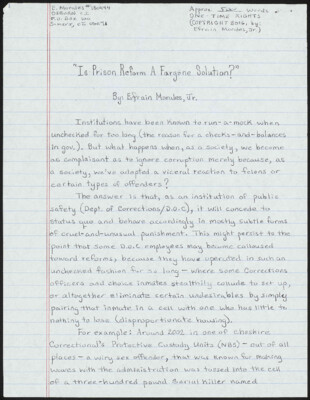 E. Morales #
Osborn C.I.
P.O. Box 100
Somers, CT 06071
Approx. words
One Time Rights
Copyright 2016, by:
Efrain Morales, Jr.
"Is Prison Reform A Fargone Solution?"
By: Efrain Morales, Jr.
Institutions have been known to run-a-mock when
unchecked for too long (the reason for a checks-and-balances
in gov.). But what happens when, as a society, we become
so complaisant as to ignore corruption merely because, as
a society, we've adopted a visceral reaction to felons or
certain types of offenders?
The answer is that, as an institution of public
safety (Dept. of Corrections/D.O.C), it will concede to
status quo and behave accordingly in mostly subtle forms
of cruel-and-unusual punishment. This might persist to the
point that some D.O.C employees may become calloused
toward reforms, because they have operated in such an
unchecked fashion for so long - where some corrections
officers and choice inmates stealthily collude to set up,
or altogether eliminate certain undesirables by simply
pairing that inmate in a cell with one who has little to
nothing to lose (disproportionate housing).
For example: Around 2002 in one of Cheshire
Correctional's Protective Custody Units (NB5) - out of all
places - a wiry sex offender, that was known for making
waves with the administration was tussed into the cell
of a three-hundred pound serial killer named